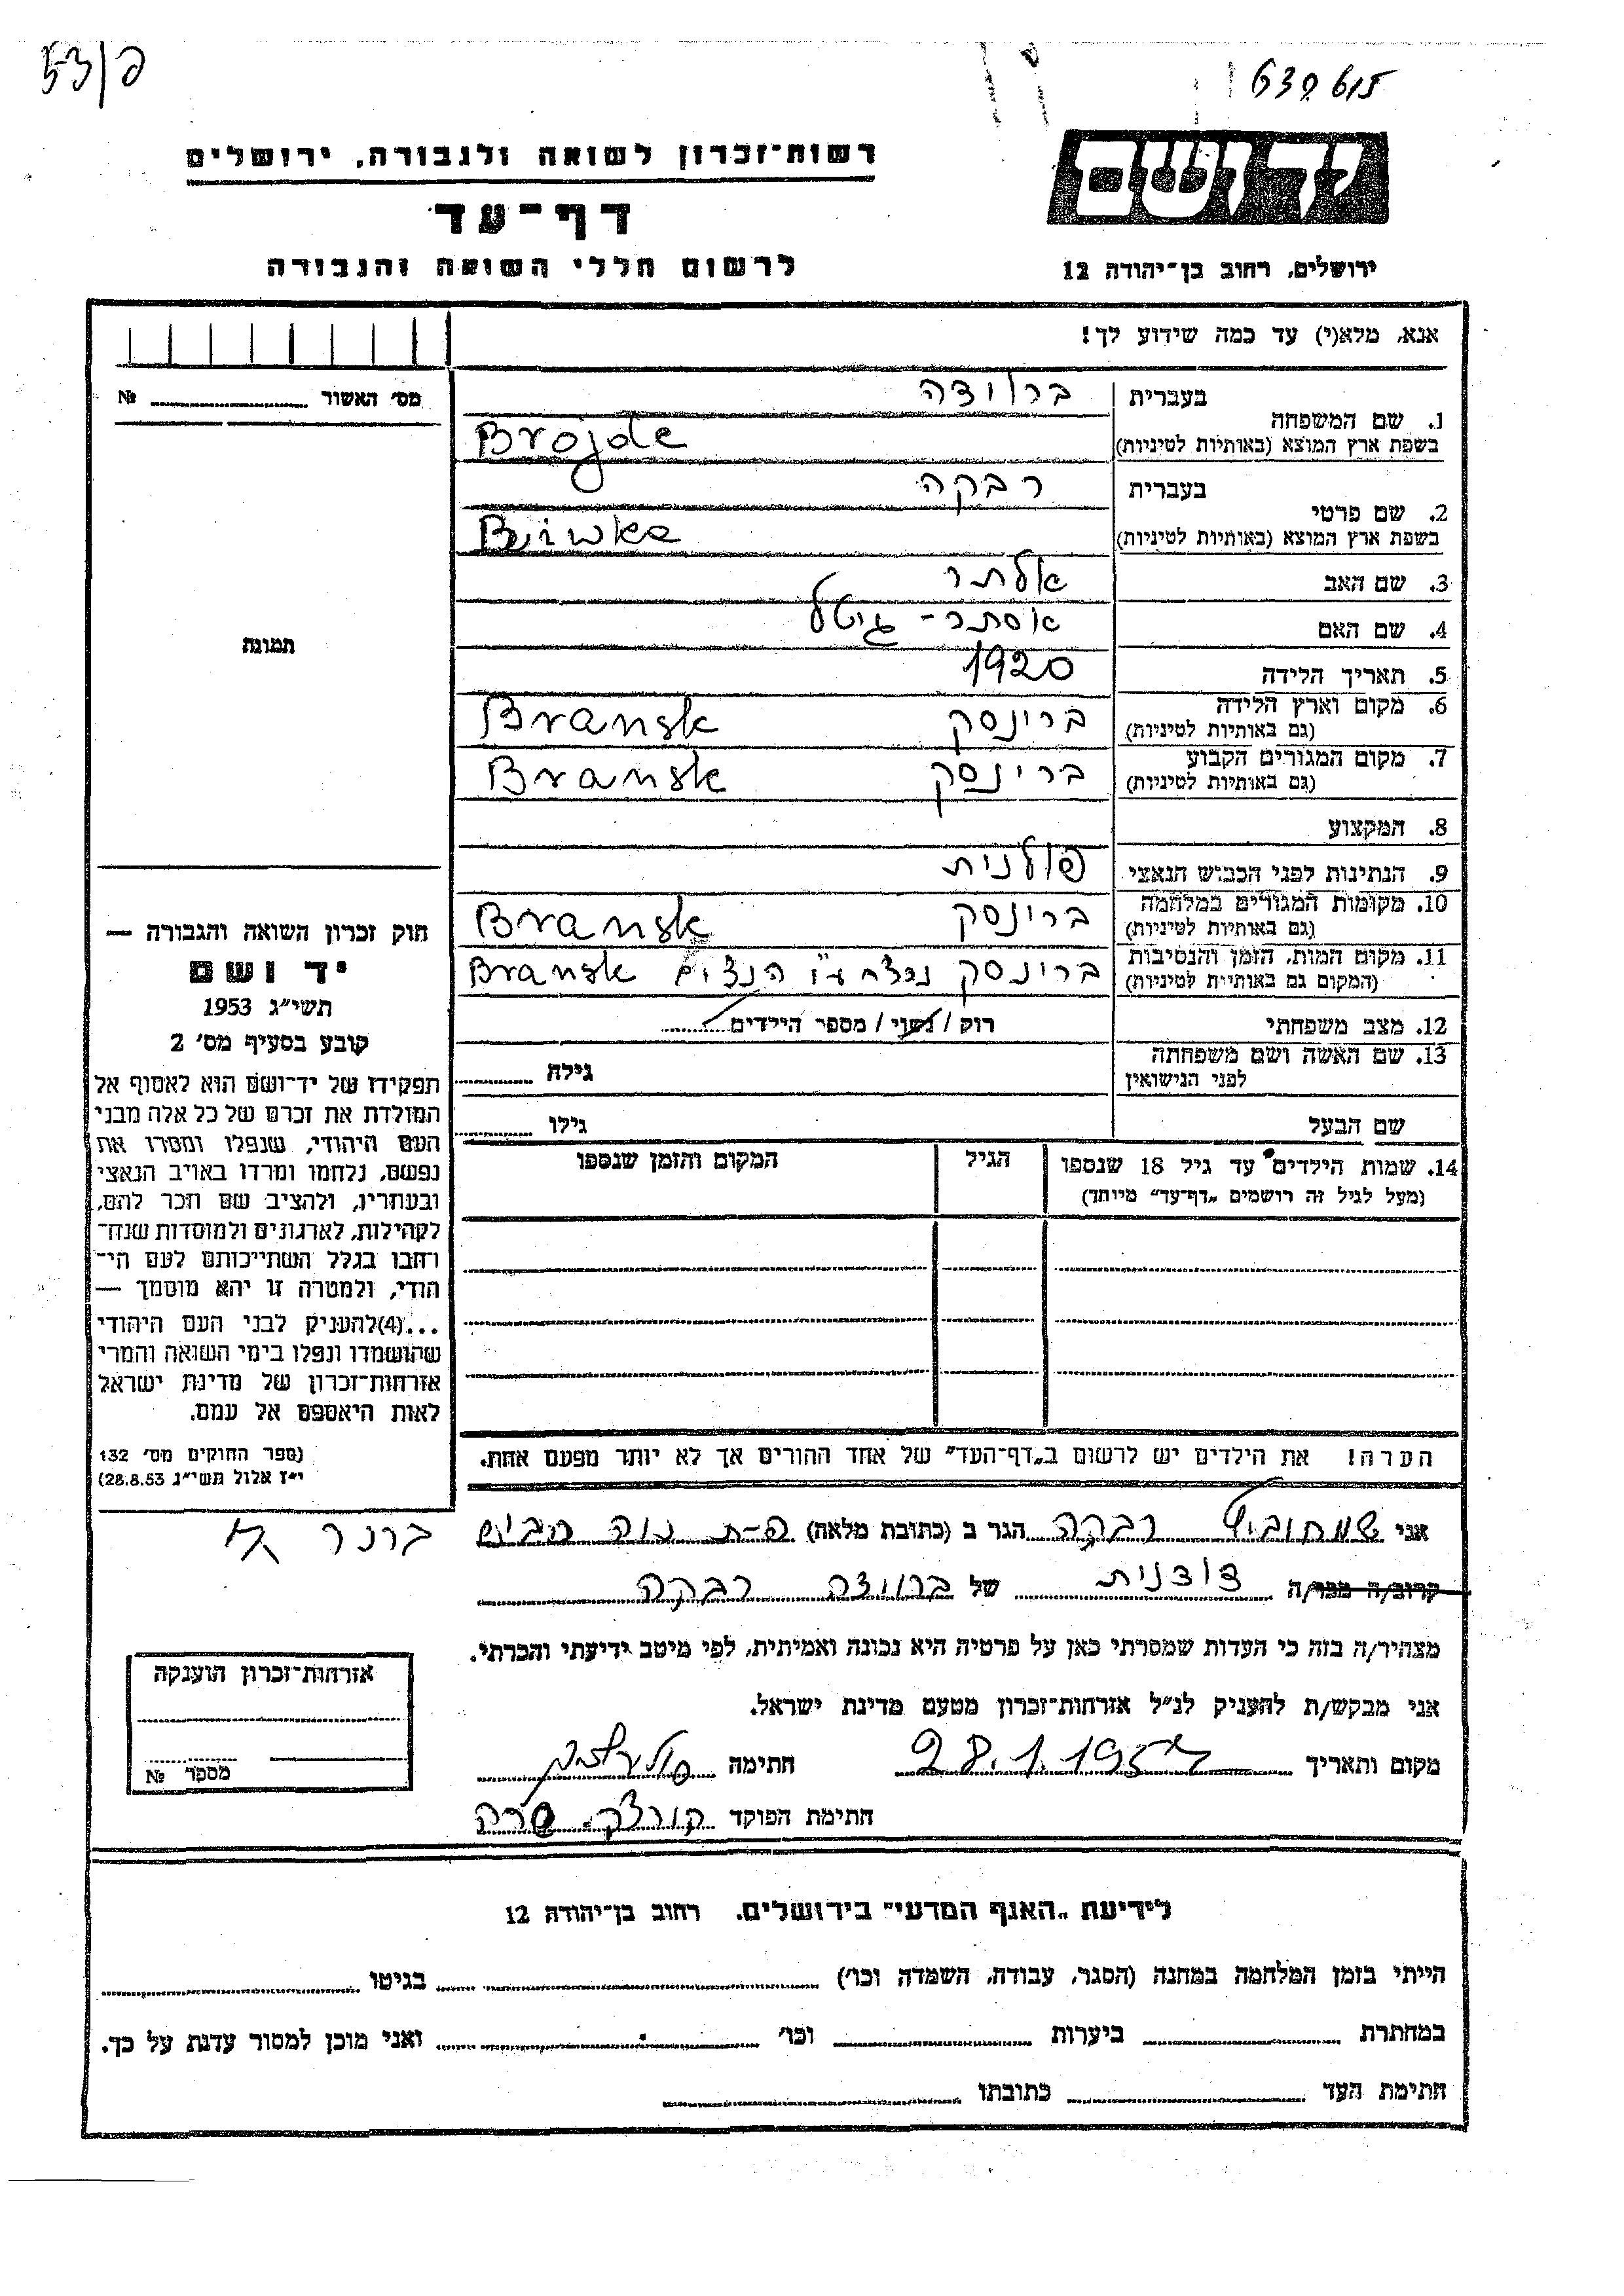 53/פ
639615
ידושם
רשות־זכרון לשואה ולגבורה, ירושלים
דף־עד
לרשום חללי השואה והגבורה
ירושלים, רחוב בן־יהודה 12
אנא, מלא(י) עד כמה שידוע לך!
מס׳ האשור № 
1. שם המשפחה
בעברית ברוידה
בשפת ארץ המוצא (באותיות לטיניות) Brojde
2. שם פרטי
בעברית רבקה
בשפת ארץ המוצא (באותיות לטיניות)
3. שם האב אלתר
4. שם האם אסתר - גיטל
5. תאריך הלידה 1920
6. מקום וארץ הלידה ברינסק Bransk
(גם באותיות לטיניות)
7. מקום המגורים הקבוע ברינסק Bransk
(גם באותיות לטיניות)
8. המקצוע
9. הנתינות לפני הכבוש הנאצי פולנית
10. מקומות המגורים במלחמה ברינסק Bransk
(גם באותיות לטיניות)
11. מקום המות, הזמן והנסיבות ברינסק נרצח ע״י הנצים Bransk
(המקום גם באותיות לטיניות)
12. מצב משפחתי רוק / נשוי / מספר הילדים
13. שם האשה ושם משפחתה
לפני הנישואין
גילה
שם הבעל גילו
14. שמות הילדים עד גיל 18 שנספו
(מעל לגיל זה רושמים „דף־עד” מיוחד)
הגיל
המקום והזמן שנספו
הערה! את הילדים יש לרשום ב„דף־העד” של אחד ההורים אך לא יותר מפעם אחת.
תמונה
חוק זכרון השואה והגבורה —
יד ושם
תשי״ג 1953
קובע בסעיף מס׳ 2
תפקידו של יד־ושם הוא לאסוף אל
המולדת את זכרם של כל אלה מבני
העם היהודי, שנפלו ומסרו את
נפשם, נלחמו ומרדו באויב הנאצי
ובעוזריו, ולהציב שם וזכר להם,
לקהילות, לארגונים ולמוסדות שנח־
רבו בגלל השתייכותם לעם הי־
הודי, ולמטרה זו יהא מוסמך —
...(4) להעניק לבני העם היהודי
שהושמדו ונפלו בימי השואה והמרי
אזרחות־זכרון של מדינת ישראל
לאות היאספם אל עמם.
(ספר החוקים מס׳ 132
י״ז אלול תשי״ג 28.8.53)
אני רבקה הגר ב (כתובת מלאה) פ-ת נוה
ברנר
קרוב/ה מכר/ה דודנית של ברוידה רבקה
מצהיר/ה בזה כי העדות שמסרתי כאן על פרטיה היא נכונה ואמיתית, לפי מיטב ידיעתי והכרתי.
אני מבקש/ת להעניק לנ״ל אזרחות־זכרון מטעם מדינת ישראל.
מקום ותאריך 28.1.195 חתימה
חתימת הפוקד שרה
אזרחות־זכרון הוענקה
מספר №
לידיעת „האגף המדעי” בירושלים, רחוב בן־יהודה 12
הייתי בזמן המלחמה במחנה (הסגר, עבודה, השמדה וכו׳) בגיטו
במחתרת ביערות וכו׳ ואני מוכן למסור עדות על כך.
חתימת העד כתובתו